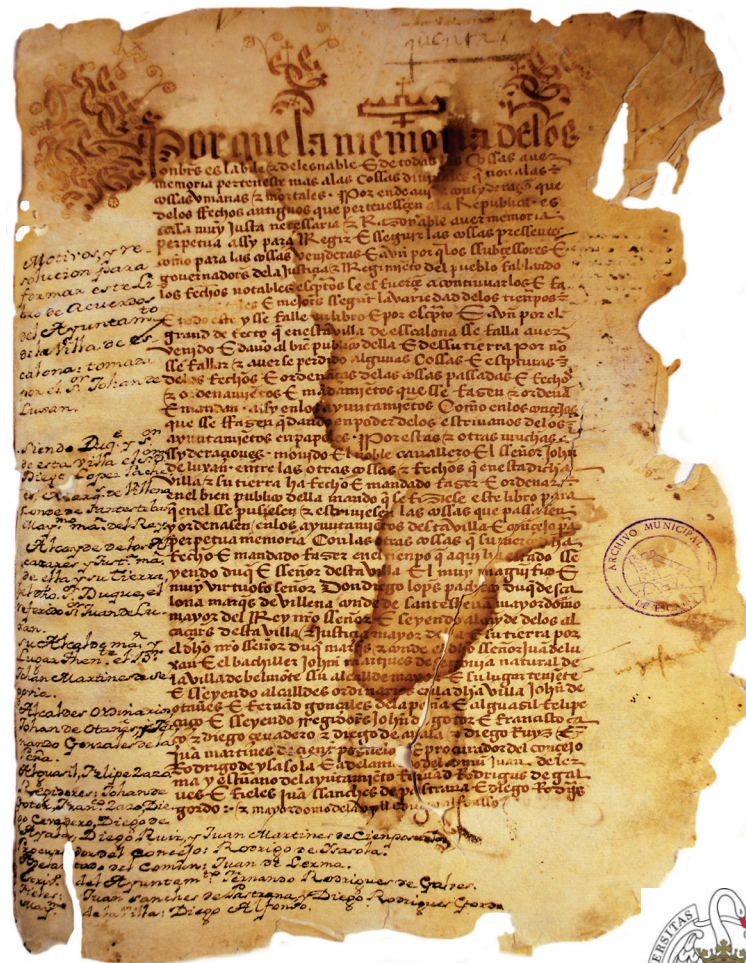 quenta
Por que la memoria delos
onbrs es labile & delesnable E de todas las Cossas aver
memoria perteneste mas alas Cossas divinas q non alas
cossas omanas & mortales. Por ende avi muy que
delos ffechos antiguos que pertenessen a la Republica es
cosa muy Justa necessaria & Razonable aver memoria
perpetua assy para Regir E sseguir las cossas pressentes
como para las cossas venideras E avn por q los ssubcessores E
governadors dela Justiçia & Regimieto del pueblo fallando
los fechos notables escptos se esfuerçe a continuarlos E fa
les E mejors ssegut la variedad delos tienpos
E todo esto y sse falle libro E por escpto E avn por el
grand defecto q en esta villa de escalona sse falla aver
venido E daño al bie publico della E de ssu tierra por no
sse fallar & averse perdido algunas Cossas E escpturas
delos fechos E ordenanças delas cossas passadas E fechos
& ordenamietos E mandamietos que sse fazen & ordena
E mandan assy enlos ayuntamietos Como enlos conçejos
que sse ffazen qdando en poder delos escrivanos delos
ayuntamietos en papeles. Por estas & otras muchas
ssy deragones movido El noble cavallero El sseñor John
de luxan entre las otras cossas & fechos q en esta dicha
villa & su tierra ha fecho E mandado fazer E ordenar
en el bien publico della mando q se fiziese este libro para
q en el sse pusiesen & escriviesen las cossas que passasen
y ordenasen enlos ayuntamietos desta villa E conçejo pa
perpetua memoria Con las otras cossas que su merçed ha
fecho E mandado fazer en el tienpo q aqui ha estado sse
yendo duq E sseñor desta villa El muy magnifico E
muy virtuoso señor Don diego lopes pacheco duq desca
lona marqs de villena conde de santesteva mayordomo
mayor del Rey nro señor E seyendo alcayde delos al
caçars desta villa & Justiçia mayor de su tierra por
el dho nro sseñor duq marqs & conde el dho sseñor Jua de lu
xan E el bachiller John martines de natural de
la villa de belmote ssu alcallde mayor E su lugar teniete
E sseyendo alcalldes ordinarios en la dha villa John de
otañes E ferand gonçales dela peña E alguasil felipe
çaço E sseyendo rregidors John d gotor E fransisco ça
ço & diego çenadero & diego de ayala & diego Ruys E
Jua martines de çienpoçuelos E procurador del conçejo
Rodrigo de ysasola E adelantado del comu Juan de lez
ma y escrivano del ayuntamieto ferrnad Rodrigus de gal
ves E fieles Jua ssanches de pastrana E diego Rodrigs
gordo & mayordomo dela villa diego alfonso
Motivos, y re-
solucion para
formar este Li
bro de Acuerdos
del Ayuntamto
de la Villa de Es
calona: tomada
por el Sr. Johan de
Luxan.
Siendo Duqe y Sr.
de esta villa el Sr.
Diego Lopez Pache
co, Marqs. de Villena
Conde de Santesteban
Maymo. ma. del Rey
Alcayde de los Al
cazares, y Just. ma.
de esta y su Tierra,
por dho. Sr. Duque, el
referido Sr. Juan de Lu-
xan.
Su Alcalde mar. y
Lugar Then. el Br.
Johan Martines de Se
govia.
Alcaldes Ordinarios
Johan de Otañes, y Fer
nando Gonzales de la
Peña.
Alguasil, Felipe Zazo
Regidores: Johan de
Gotor, Franco. Zazo, Die-
go Cenadero, Diego de
Ayala, Diego Ruiz, y Juan Martines de Cienpozuelos
Procurador del Concejo: Rodrigo de Ysasola.
Adelantado del Comun: Juan de Lerma.
Escrib. del Ayuntamto. Fernando Rodrigues de Galves.
Fieles: Juan Sanches de Pastrana, y Diego Rodrigues Gordo
Maymo. de la Villa: Diego Alfonso.
ARCHIVO MUNICIPAL
DE ESCALONA
ERSITAS